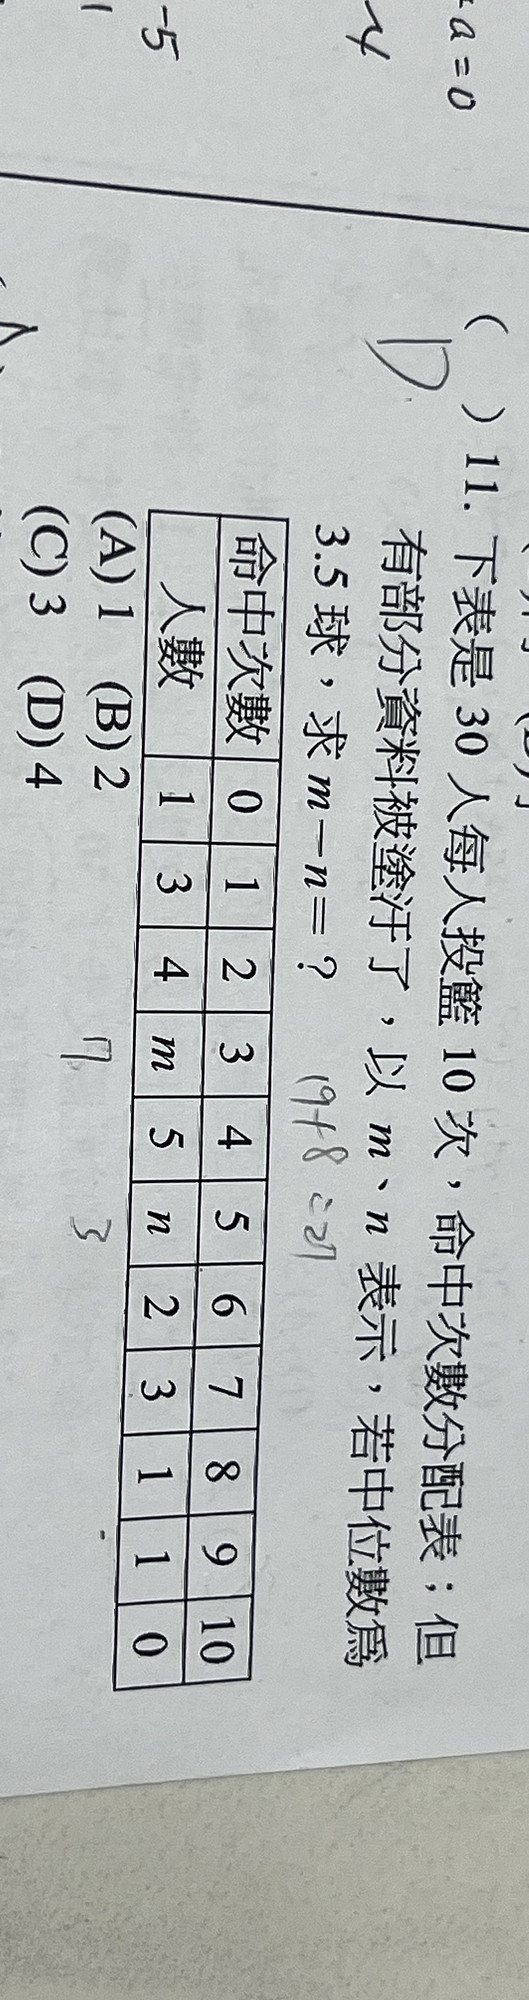 a=0
-5
( ) 11. 下表是 30 人每人投籃 10 次，命中次數分配表；但
D
有部分資料被塗汙了，以 m、n 表示，若中位數為
3.5 球，求 m－n＝？
19+8=27
命中次數 0 1 2 3 4 5 6 7 8 9 10
人數 1 3 4 m 5 n 2 3 1 1 0
7 3
(A) 1 (B) 2
(C) 3 (D) 4